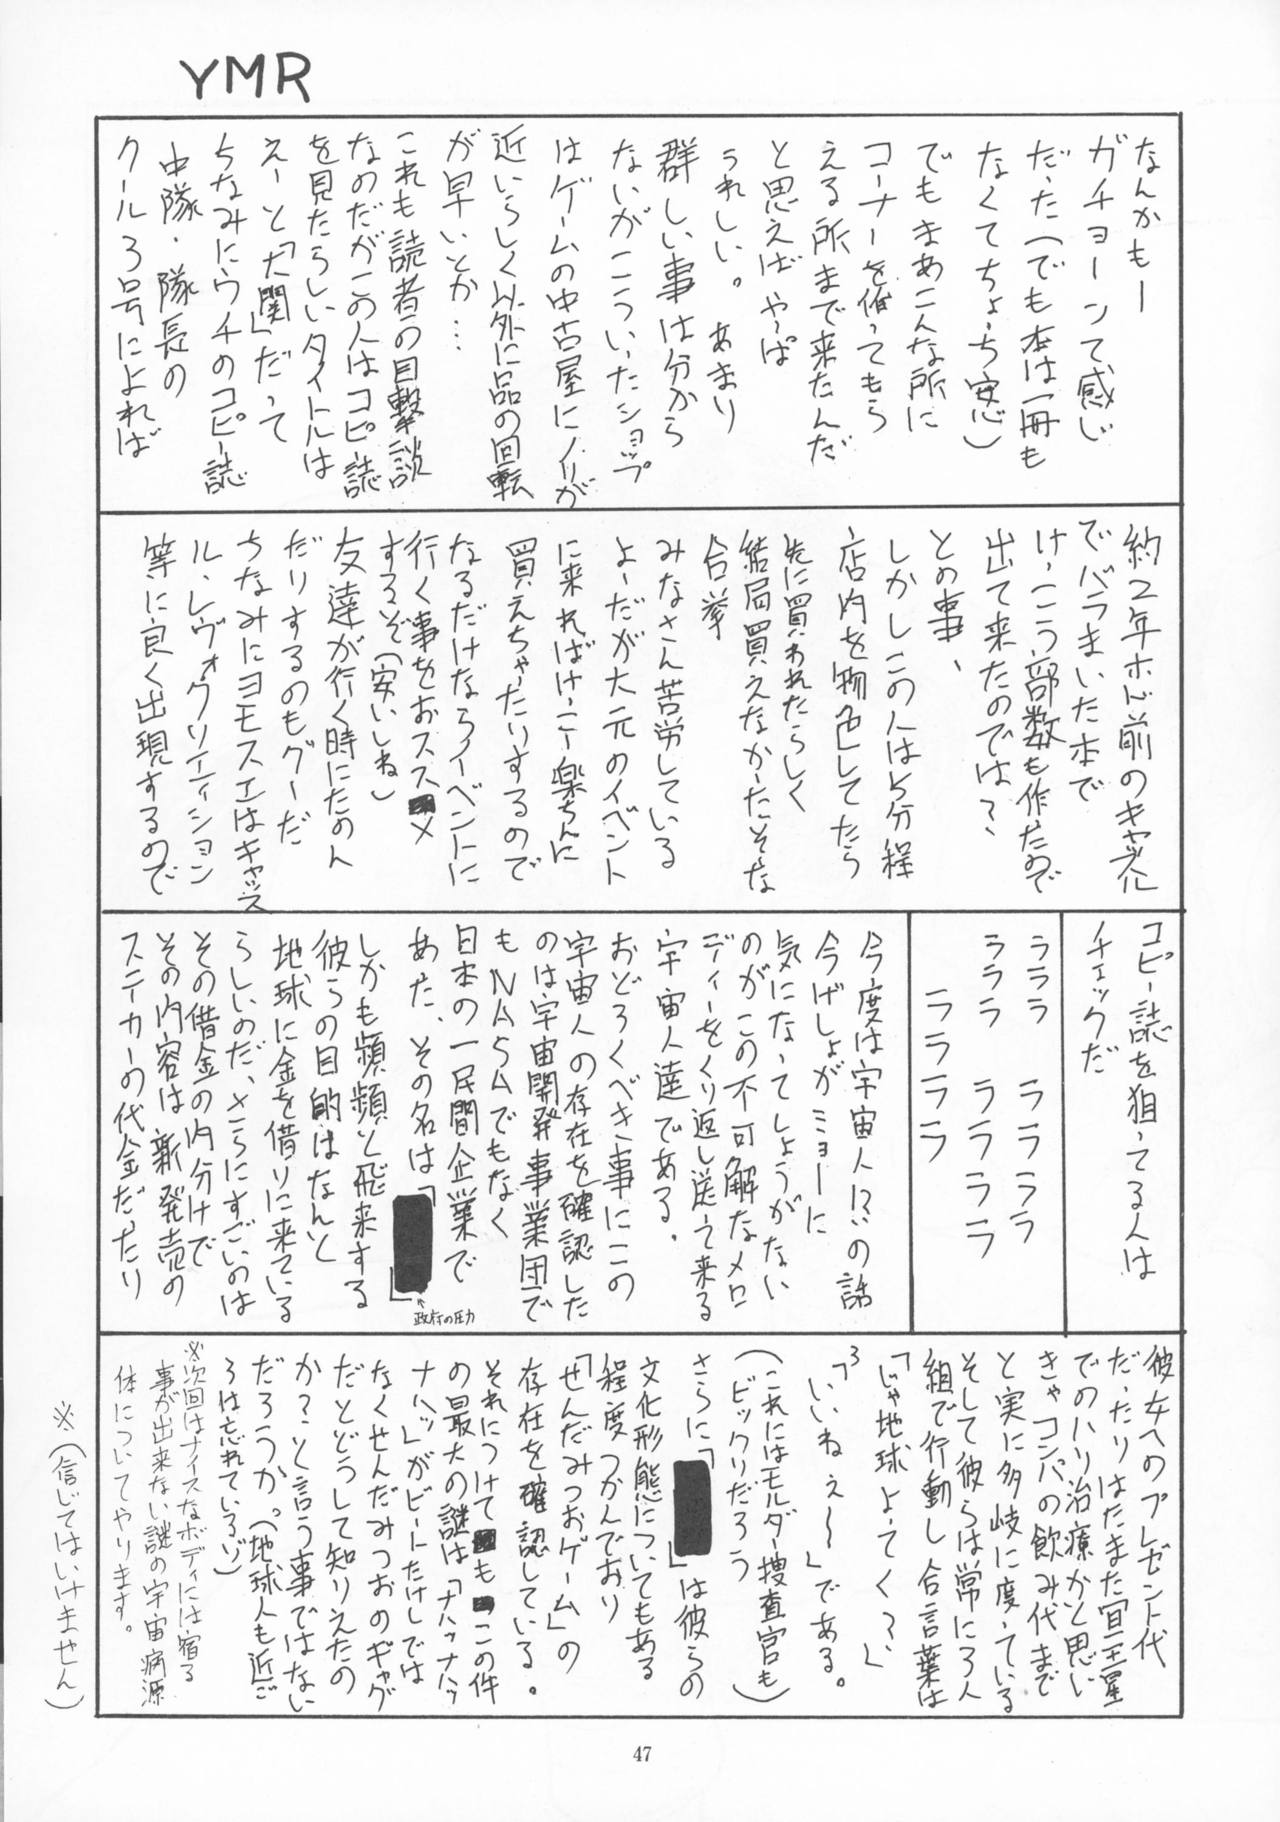 YMR
なんかもー
ガチョーンて感じ
だった(でも本は一冊も
なくてちょっち安心)
でもまあこんな所に
コーナーを作ってもら
える所まで来たんだ
と思えばやっぱ
うれしい。あまり
群しい事は分から
ないがこういったショップ
はゲームの中古屋にノリが
近いらしく以外に品の回転
が早いとか…
これも読者の目撃談
なのだがこの人はコピー誌
を見たらしいタイトルは
えーと「大関」だって
ちなみにウチのコピー誌
中隊・隊長の
クール3号によれば
約2年ホド前のキャッスル
でバラまいた本で
けっこう部数も作たので
出て来たのでは?
との事、
しかしこの人は5分程
店内を物色してたら
先に買われたらしく
結局買えなかったそな
合掌
みなさん苦労している
よーだが大元のイベント
に来ればけっこー楽ちんに
買えちゃったりするので
なるだけならイベントに
行く事をおススメ
するぞ(安いしね)
友達が行く時にたのん
だりするのもグーだ
ちなみにヨモスエはキャッス
ル、レヴォ、クリエイション
等に良く出現するので
コピー誌を狙ってる人は
チェックだ
ラララ ララララ
ラララ ララララ
ララララ
今度は宇宙人!?の話
今げしょがミョーに
気になってしょうがない
のがこの不可解なメロ
ディーをくり返し送って来る
宇宙人達である。
おどろくべき事にこの
宇宙人の存在を確認した
のは宇宙開発事業団で
もNASAでもなく
日本の一民間企業で
あた、その名は「
」
↑政府の圧力
しかも頻頻と飛来する
彼らの目的はなんと
地球に金を借りに来ている
らしいのだ、さらにすごいのは
その借金の内分けで
その内容は新発売の
スニーカーの代金だったり
彼女へのプレゼント代
だったりはたまた冥王星
でのハリ治療かと思い
きゃコンパの飲み代まで
と実に多岐に度っている
そして彼らは常に3人
組で行動し合言葉は
「じゃ地球よってく?」
「いいねぇ〜」である。
(これにはモルダー捜査官も
ビックリだろう)
さらに「
」は彼らの
文化形態についてもある
程度つかんでおり
「せんだみつおゲーム」の
存在を確認している。
それにつけても この件
の最大の謎は「ナハッナハッ
ナハッ」がビートたけしでは
なくせんだみつおのギャグ
だとどうして知りえたの
か?と言う事ではない
だろうか。(地球人も近ご
ろは忘れているゾ)
※次回はナイスなボディには宿る
事が出来ない謎の宇宙病源
体についてやります。
※(信じてはいけません)
47